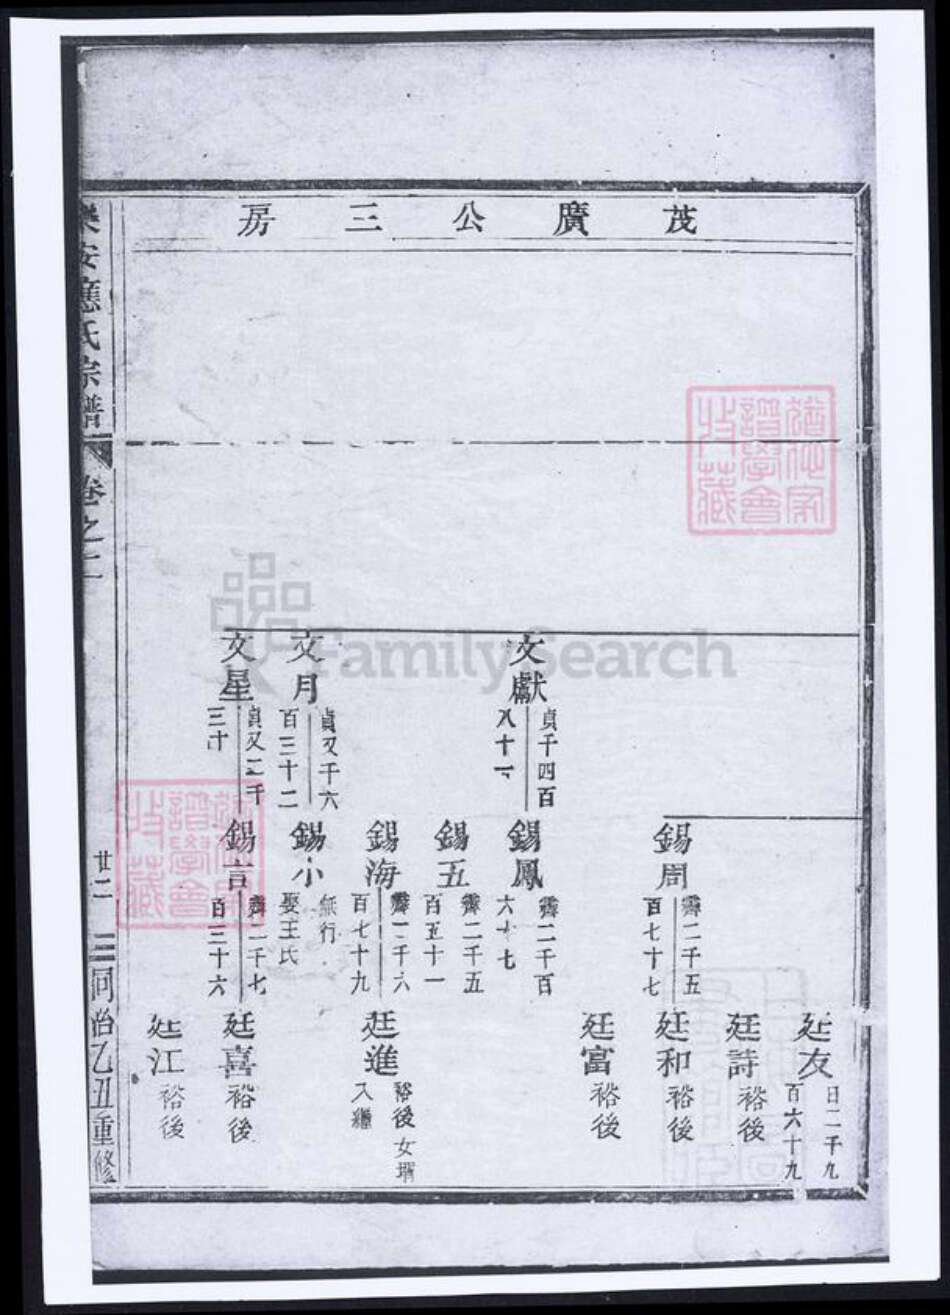 茂廣公三房
文獻
貞千四百
八十一
文月
貞又千六
百三十二
文星
貞又二千
三十
錫周
霽二千五
百七十七
錫鳳
霽二千百
六十七
錫五
霽二千五
百五十一
錫海
霽二千六
百七十九
錫小
無行
娶王氏
錫言
霽二千七
百三十六
廷友
日二千九
百六十九
廷詩
裕後
廷和
裕後
廷富
裕後
廷進
裕後女壻
入繼
廷喜
裕後
廷江
裕後
樂安應氏宗譜
卷之二
廿二
同治乙丑重修
譜學會
收藏
FamilySearch